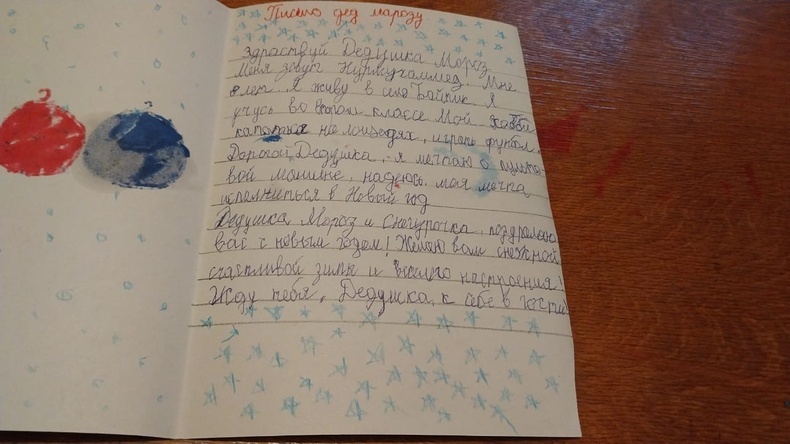 Письмо дед марозу
Здраствуй Дедушка Мороз.
Меня зовут Нурмухаммед. Мне
8 лет. Я живу в село Я
учусь во втором классе Мой Хобби
на лошедях, играю футбол.
Дорогой, Дедушка, я мечтаю о
вой машине, надеюсь моя мечта
исполниться в Новый год
Дедушка Мороз и Снегурочка, поздравляю
вас с новым годом! Желаю вам снежной
счастливой зимы и весёлого настроения!
Жду тебя, Дедушка, к себе в гости